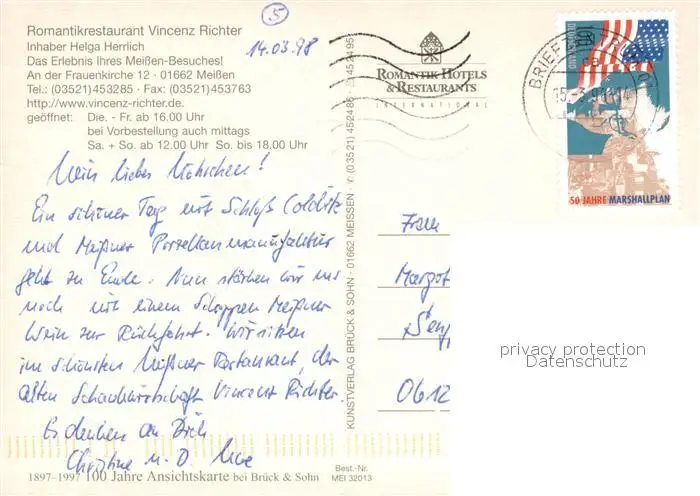 Romantikrestaurant Vincenz Richter
Inhaber Helga Herrlich
Das Erlebnis Ihres Meißen-Besuches!
An der Frauenkirche 12 · 01662 Meißen
Tel.: (03521)453285 · Fax: (03521)453763
http://www.vincenz-richter.de
geöffnet: Die. - Fr. ab 16.00 Uhr
bei Vorbestellung auch mittags
Sa. + So. ab 12.00 Uhr So. bis 18.00 Uhr
5
14.03.98
Mein liebes
Ein schöner Tag mit Schloß Colditz
und Meißner Porzellanmanufaktur
geht zu Ende. Nun stärken wir uns
noch mit einem Schoppen Meißner
Wein zur Rückfahrt. Wir sitzen
im schönsten Meißner Restaurant, der
alten Schankwirtschaft Vincenz Richter.
Es denken an Dich
Christine u. D. Uwe
1897-1997 100 Jahre Ansichtskarte bei Brück & Sohn
Best.-Nr.
MEI 32013
KUNSTVERLAG BRÜCK & SOHN · 01662 MEISSEN · (03521) 452486
ROMANTIK HOTELS
& RESTAURANTS
INTERNATIONAL
BRIEFZENTRUM
DEUTSCHLAND
50 JAHRE MARSHALLPLAN
Frau
Margot
0612
privacy protection
Datenschutz